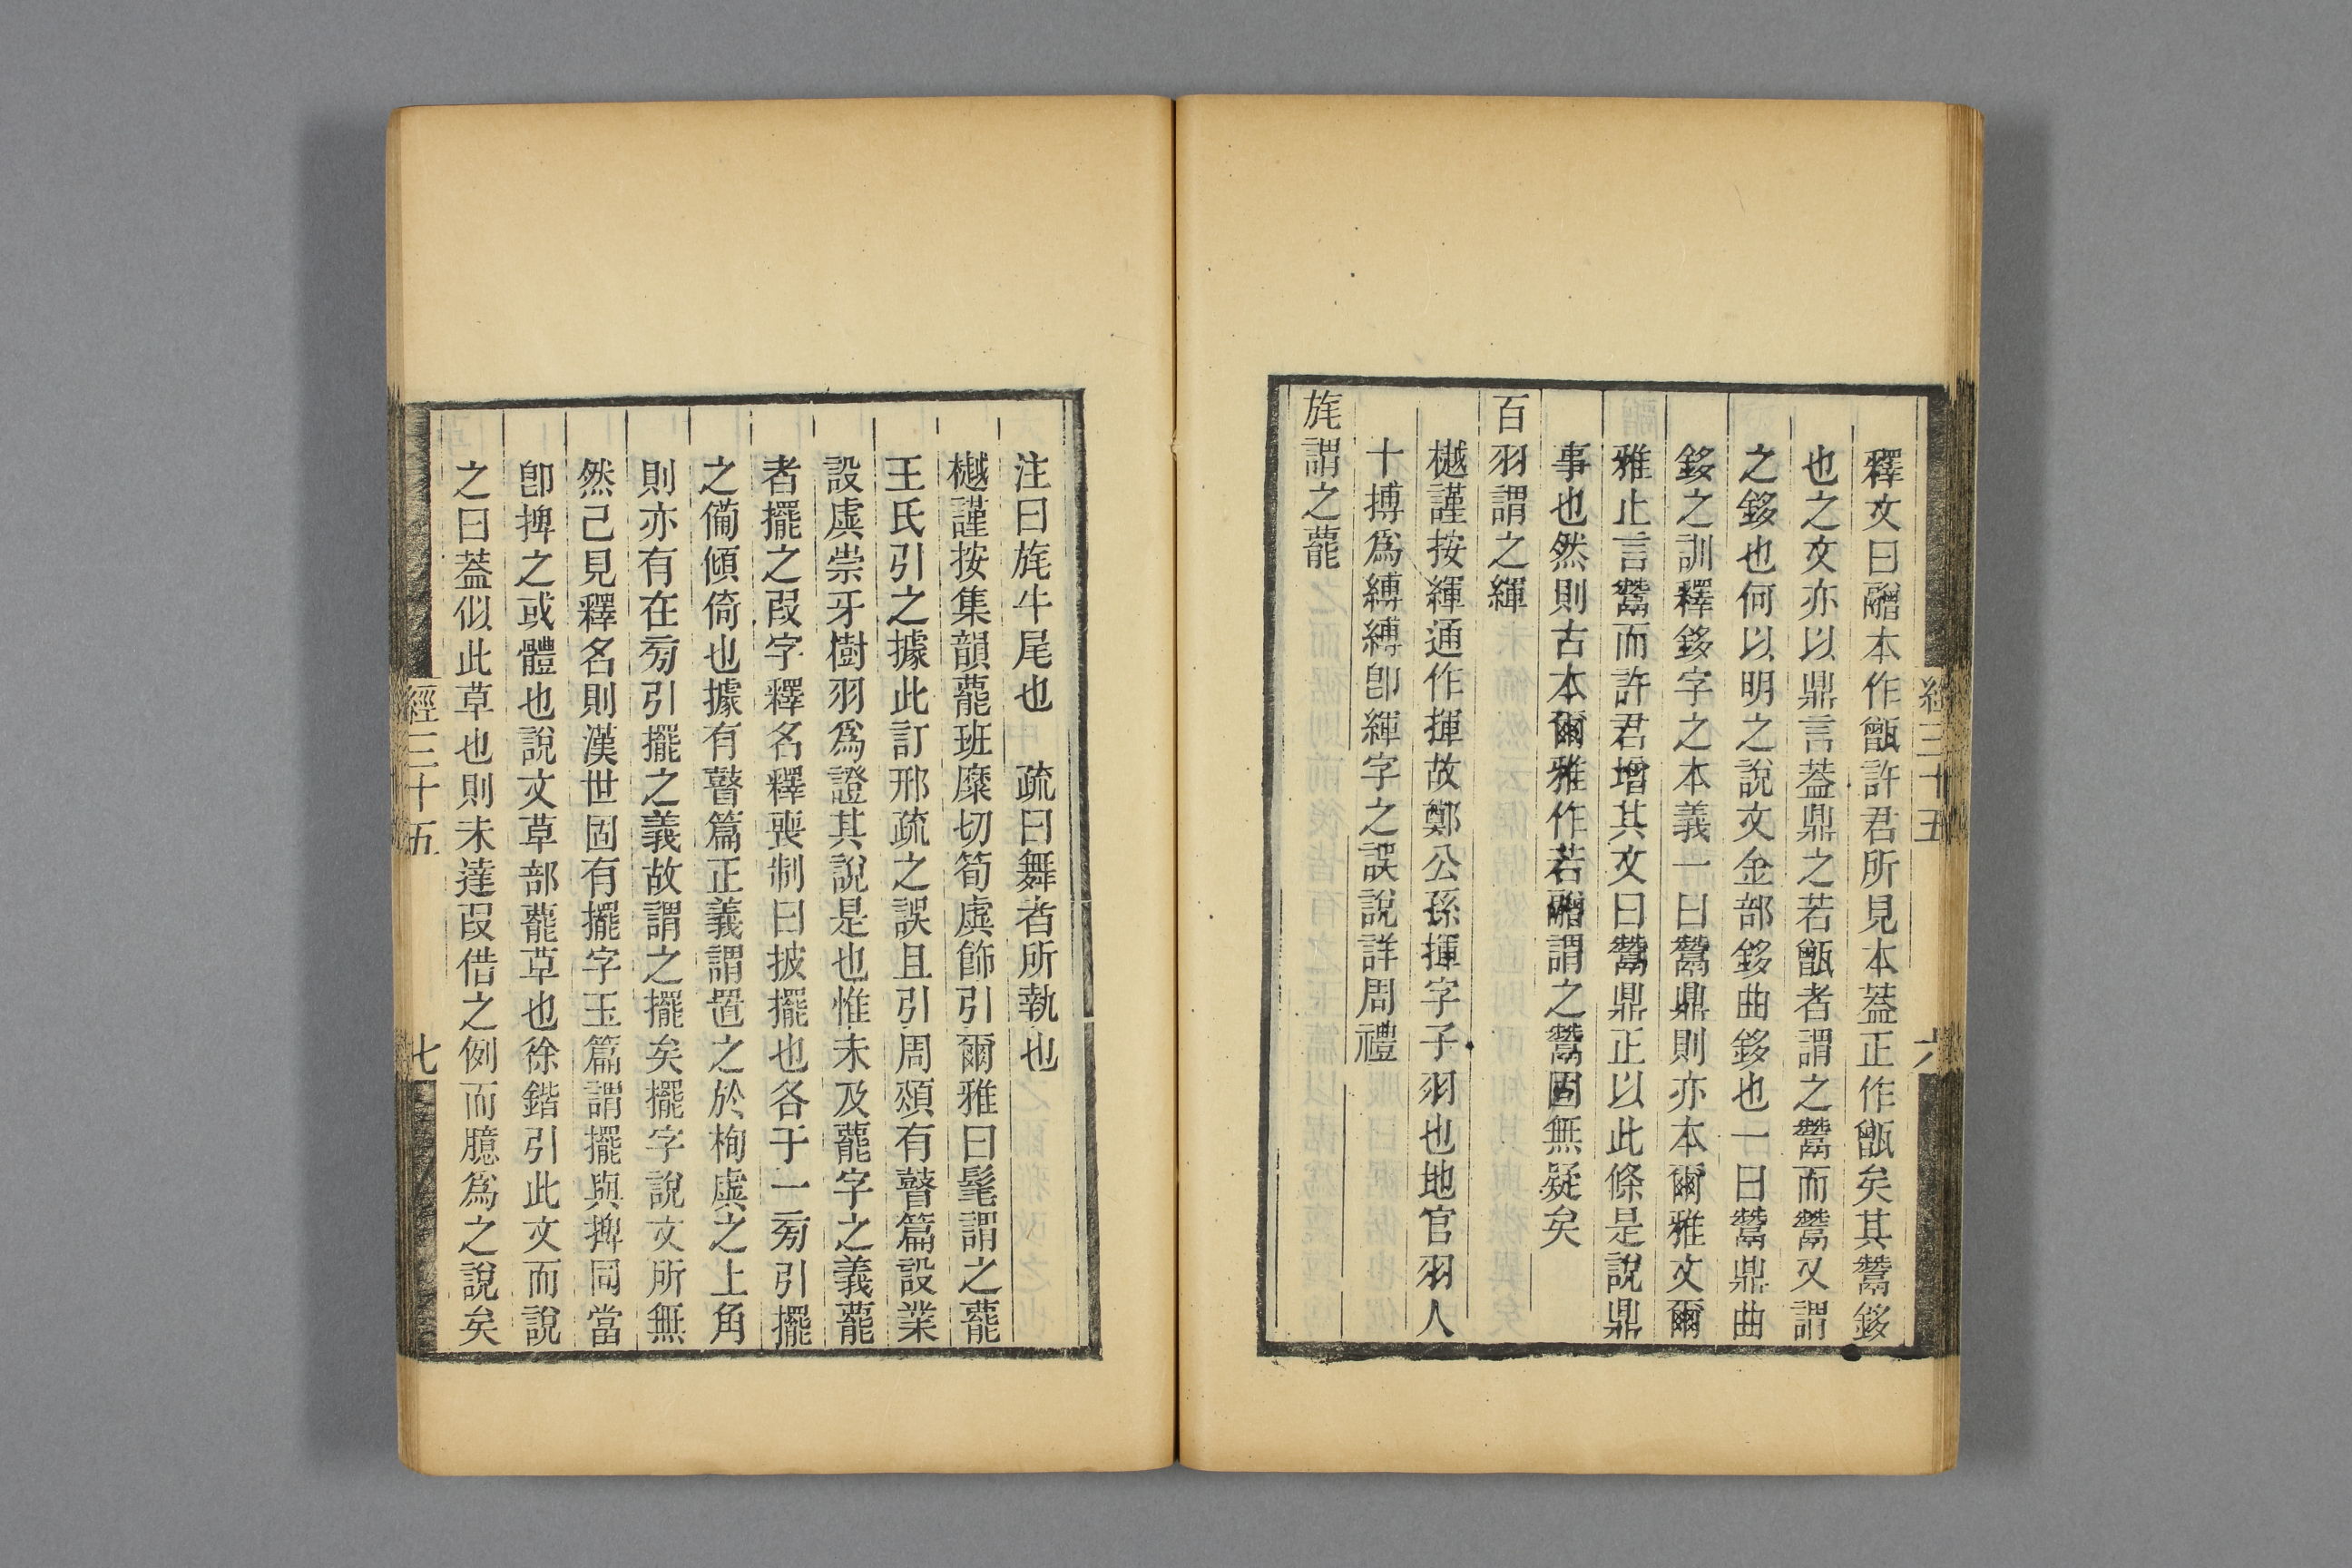 經三十五
六
釋文曰䰝本作甑許君所見本葢正作甑矣其鬵鉹
也之文亦以鼎言葢鼎之若甑者謂之鬵而鬵又謂
之鉹也何以明之說文金部鉹曲鉹也一曰鬵鼎曲
鉹之訓釋鉹字之本義一曰鬵鼎則亦本爾雅文爾
雅止言鬵而許君增其文曰鬵鼎正以此條是說鼎
事也然則古本爾雅作若䰝謂之鬵固無疑矣
百羽謂之緷
樾謹按緷通作揮故鄭公孫揮字子羽也地官羽人
十搏爲縛縛卽緷字之誤說詳周禮
旄謂之藣
注曰旄牛尾也 疏曰舞者所執也
樾謹按集韻藣班糜切筍虡飾引爾雅曰髦謂之藣
王氏引之據此訂邢疏之誤且引周頌有瞽篇設業
設虡崇牙樹羽爲證其說是也惟未及藣字之義藣
者擺之叚字釋名釋喪制曰披擺也各于一㫄引擺
之僃傾倚也據有瞽篇正義謂置之於栒虡之上角
則亦有在㫄引擺之義故謂之擺矣擺字說文所無
然己見釋名則漢世固有擺字玉篇謂擺與捭同當
卽捭之或體也說文草部藣草也徐鍇引此文而說
之曰葢似此草也則未達叚借之例而臆爲之說矣
經三十五
七